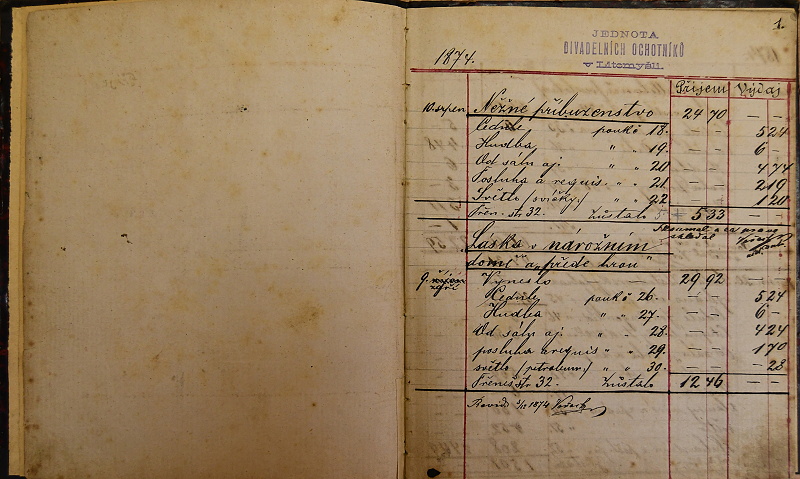 1.
JEDNOTA
DIVADELNÍCH OCHOTNÍKŮ
v Litomyšli.
1874.
Příjem Výdaj
10. srpen Něžné příbuzenstvo 24 70 — —
Cedule, poukš 18. — — 5 24
Hudba, " " 19. — — 6 —
Od sálu aj. " " 20 — — 4 74
Posluha a requis. " " 21. — — 2 19
Světlo /svíčky/ " " 22 — — 1 20
Přen. str 32. Zůstalo 5 + 5 33 — —
Laska v nárožním
domě "a přede hrou"
9. září Vyneslo — — 29 92 — —
Cedule, poukš 26. — — 5 24
Hudba " " 27. — — 6 —
Od sálu aj. " " 28. — — 4 24
posluha a requis " " 29. — — 1 70
světlo /petroleum/ " " 30. — — — 28
Přeneš. str 32. Zůstalo 12 46 — —
1874